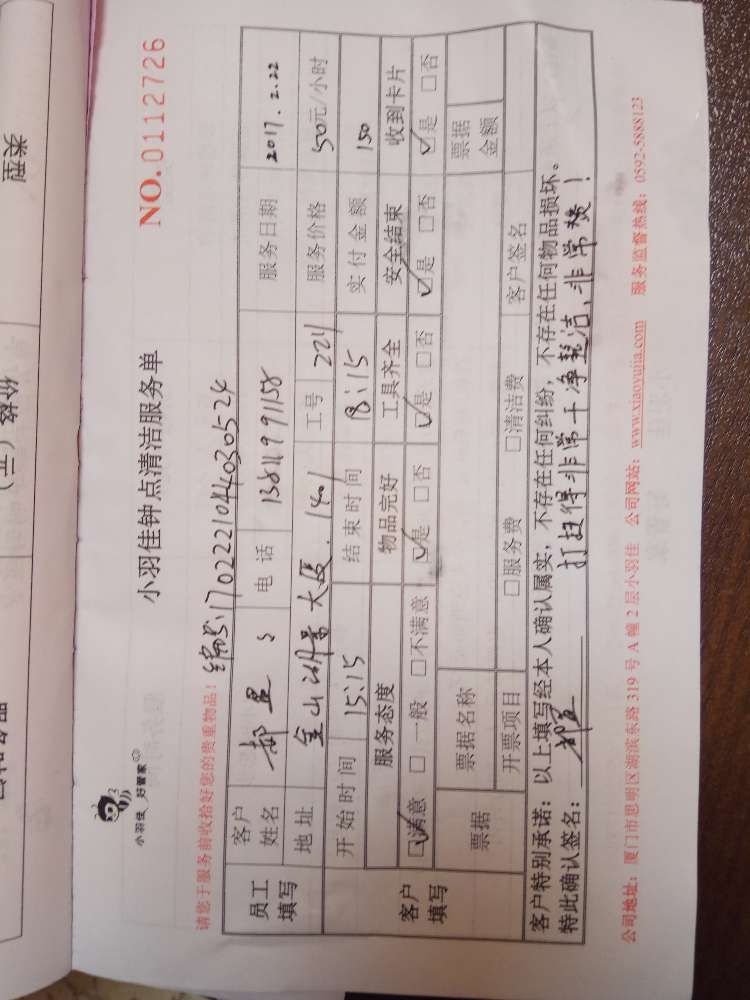 类型
价格（元）
小羽佳 好管家
小羽佳钟点清洁服务单
NO.0112726
请您于服务前收拾好您的贵重物品！
编号:170222104030524
员工填写
客户姓名
电话 13811991158
服务日期 2017.2.22
地址 金山湖景大厦.1401
工号 221
服务价格 50元/小时
客户填写
开始时间 15:15
结束时间 18:15
实付金额 150
服务态度 物品完好 工具齐全 安全结束 收到卡片
☑满意 □一般 □不满意 ☑是 □否 ☑是 □否 ☑是 □否 ☑是 □否
票据
票据名称
票据金额
开票项目 □服务费 □清洁费 客户签名
客户特别承诺：以上填写经本人确认属实，不存在任何纠纷，不存在任何物品损坏。
特此确认签名：
打扫得非常干净整洁、非常棒！
公司地址：厦门市思明区湖滨东路 319 号 A 幢 2 层小羽佳 公司网站：www.xiaoyujia.com 服务监督热线：0592-5888123